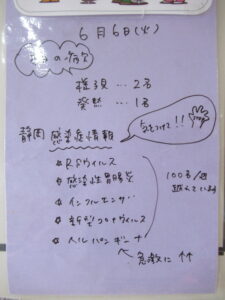 6月6日(火)
今日の病欠
様子見…2名
発熱…1名
静岡 感染症情報
気をつけて!!
☆RSウイルス
☆感染性胃腸炎
☆インフルエンザ
☆新型コロナウイルス
☆ヘルパンギーナ
急激に↑↑
100名/週
越えています